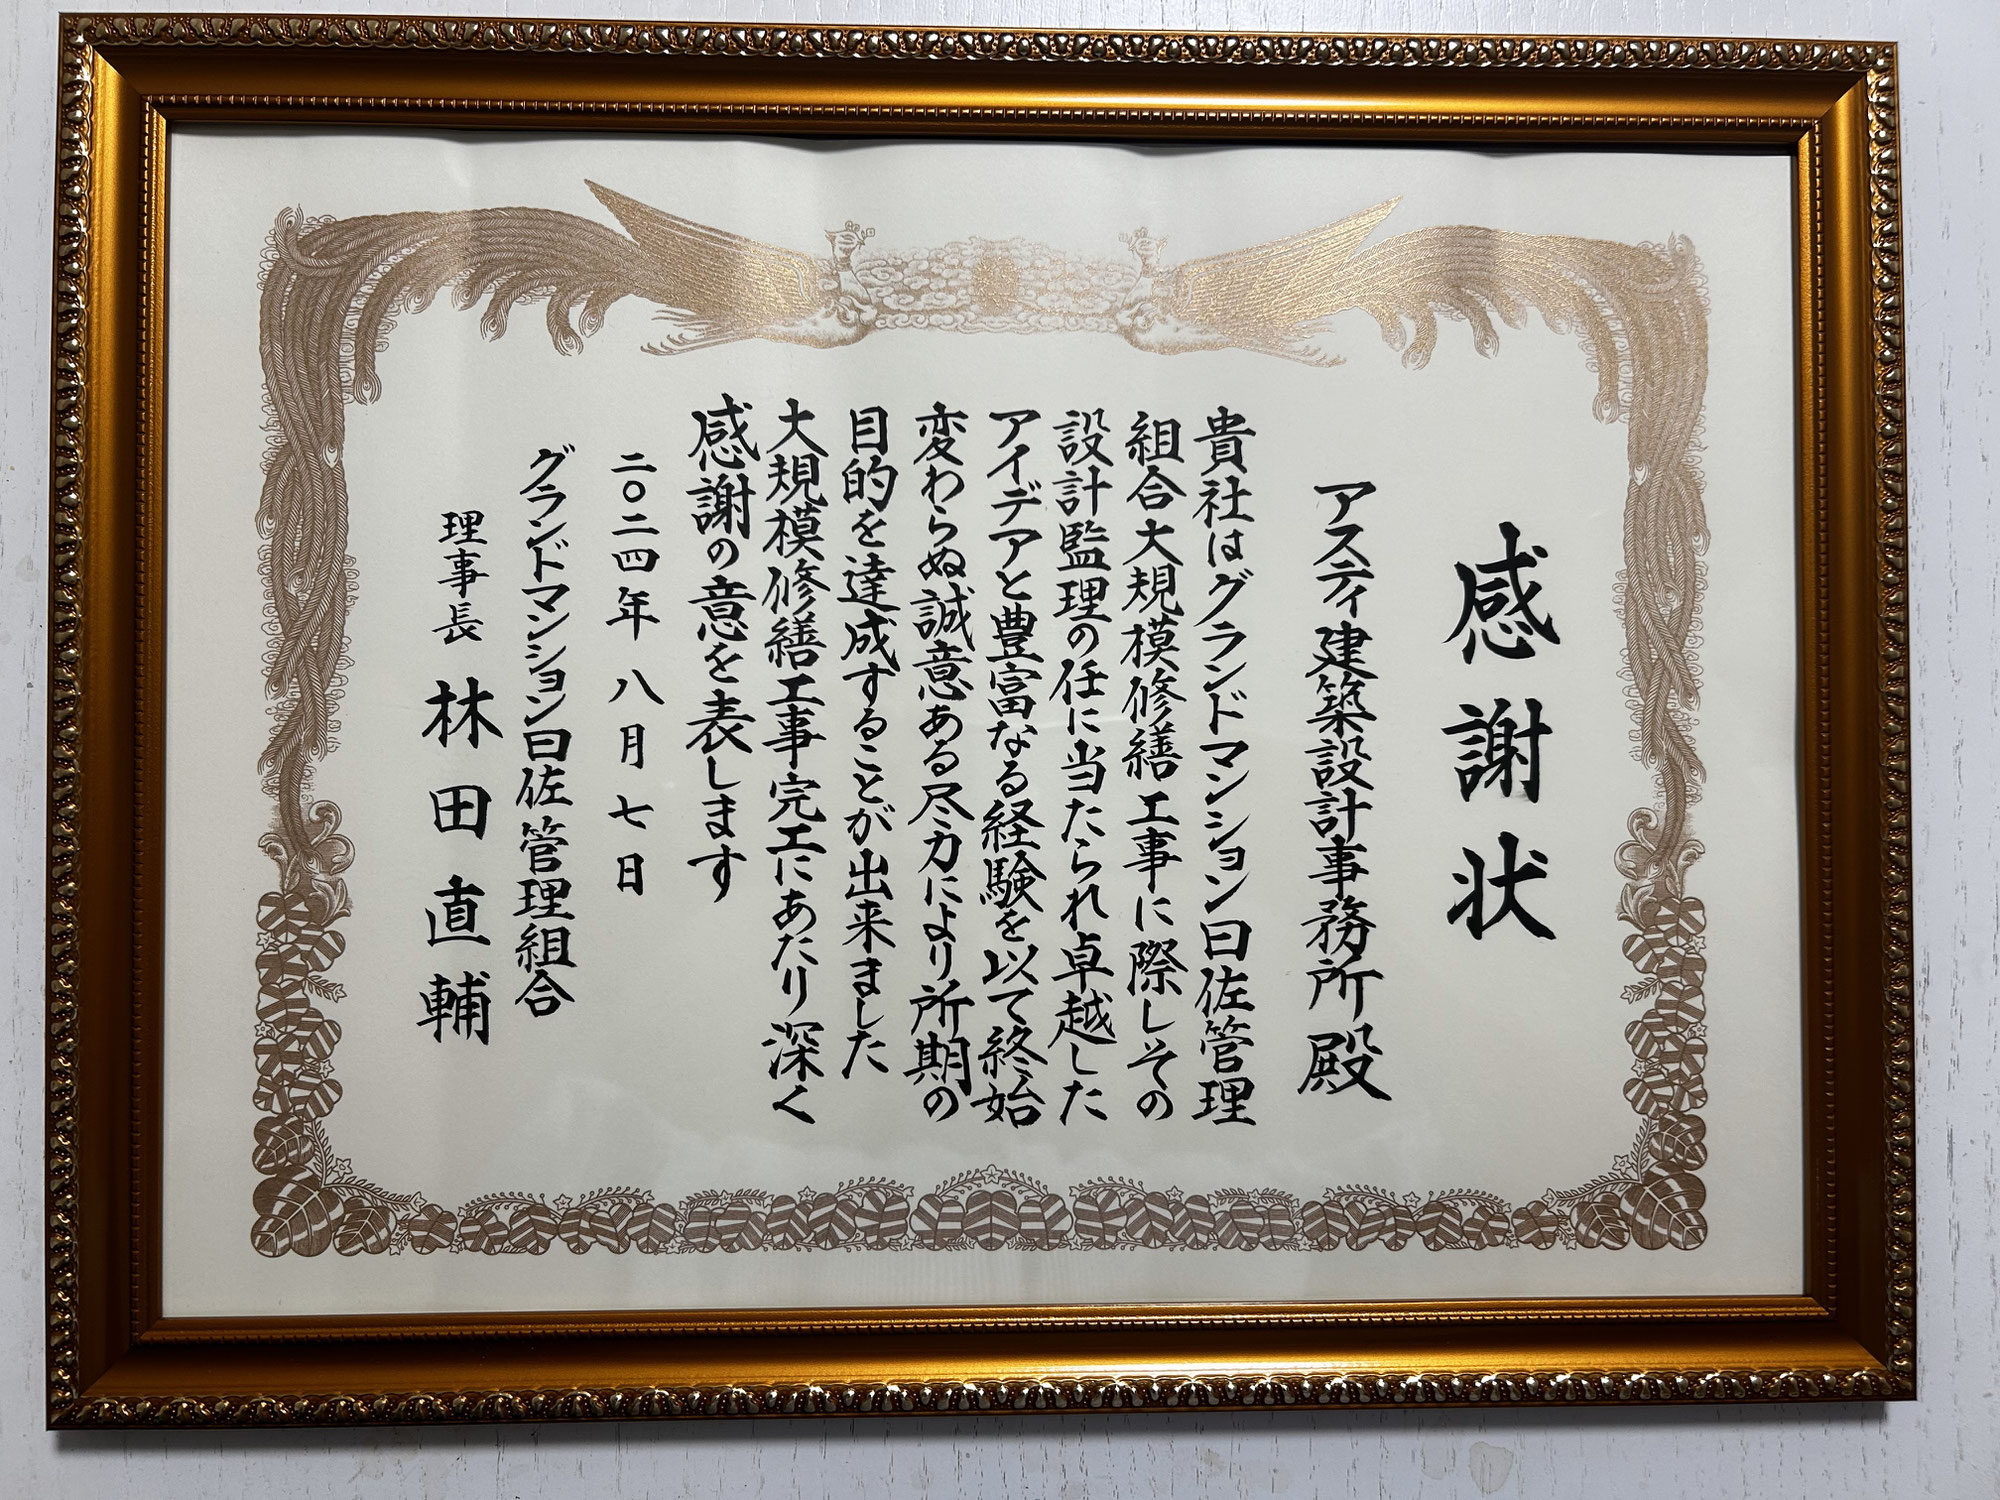 感謝状
アスティ建築設計事務所殿
貴社はグランドマンション曰佐管理
組合大規模修繕工事に際しその
設計監理の任に当たられ卓越した
アイデアと豊富なる経験を以て終始
変わらぬ誠意ある尽力により所期の
目的を達成することが出来ました
大規模修繕工事完工にあたり深く
感謝の意を表します
二〇二四年八月七日
グランドマンション曰佐管理組合
理事長 林田直輔